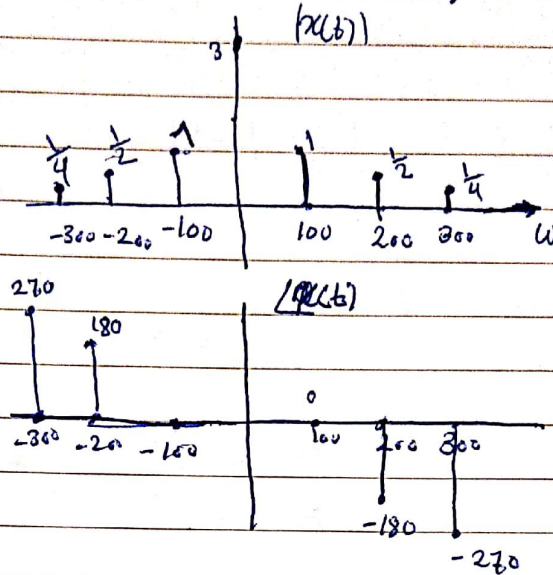 |x(t)|
3
1/4 1/2 1 1 1/2 1/4
-300 -200 -100 100 200 300 w
270 ∠x(t)
180
0
-300 -200 -100 100 200 300
-180
-270